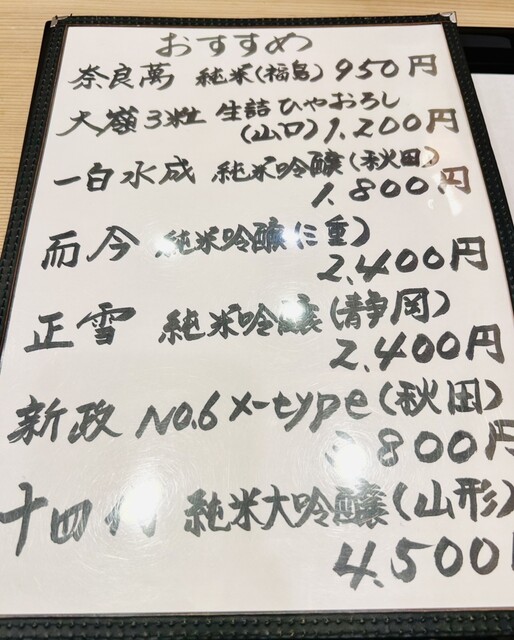 おすすめ
奈良萬 純米(福島) 950円
大嶺3粒 生詰ひやおろし
(山口) 1,200円
一白水成 純米吟醸(秋田)
1,800円
而今 純米吟醸(三重)
2,400円
正雪 純米吟醸(静岡)
2,400円
新政 No.6 X-type(秋田)
800円
十四代 純米大吟醸(山形)
4,500